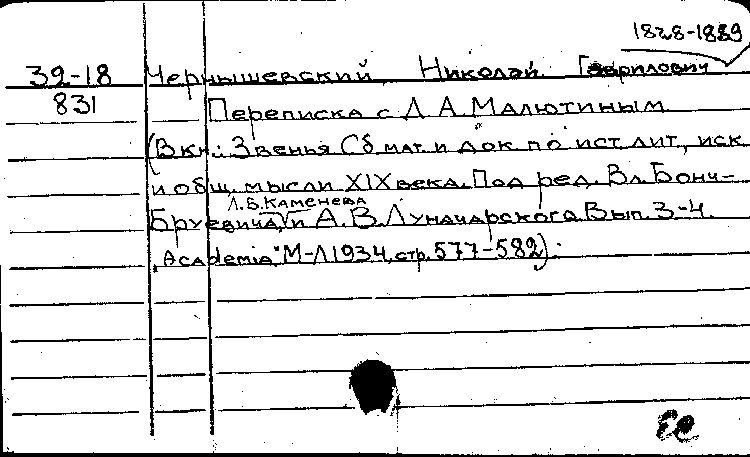 1828-1889
39-18 Чернышевский, Николай Гаврилович
831 Переписка с Д. А. Малютиным
(В кн.: Звенья Сб. мат. и док. по ист. лит., иск.
и общ. мысли XIX века. Под ред. Вл. Бонч-
Л.Б. Каменева
Бруевича, и А.В. Луначарского. Вып. 3-4.
"Academia" М-Л 1934, стр. 577-582).
ЕС